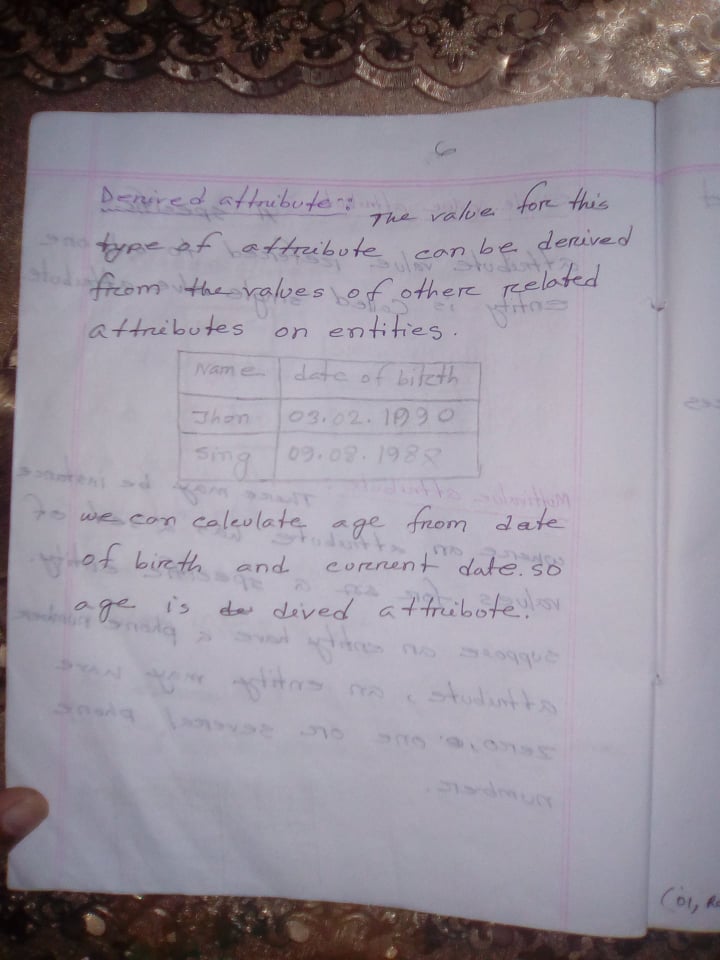 6
Derived attribute:
The value for this
type of attribute can be derived
from the values of other related
attributes on entities.
Name date of birth
Jhon 03.02.1990
Sing 09.08.198
we can calculate age from date
of birth and current date. so
age is de dived attribute.
(01,